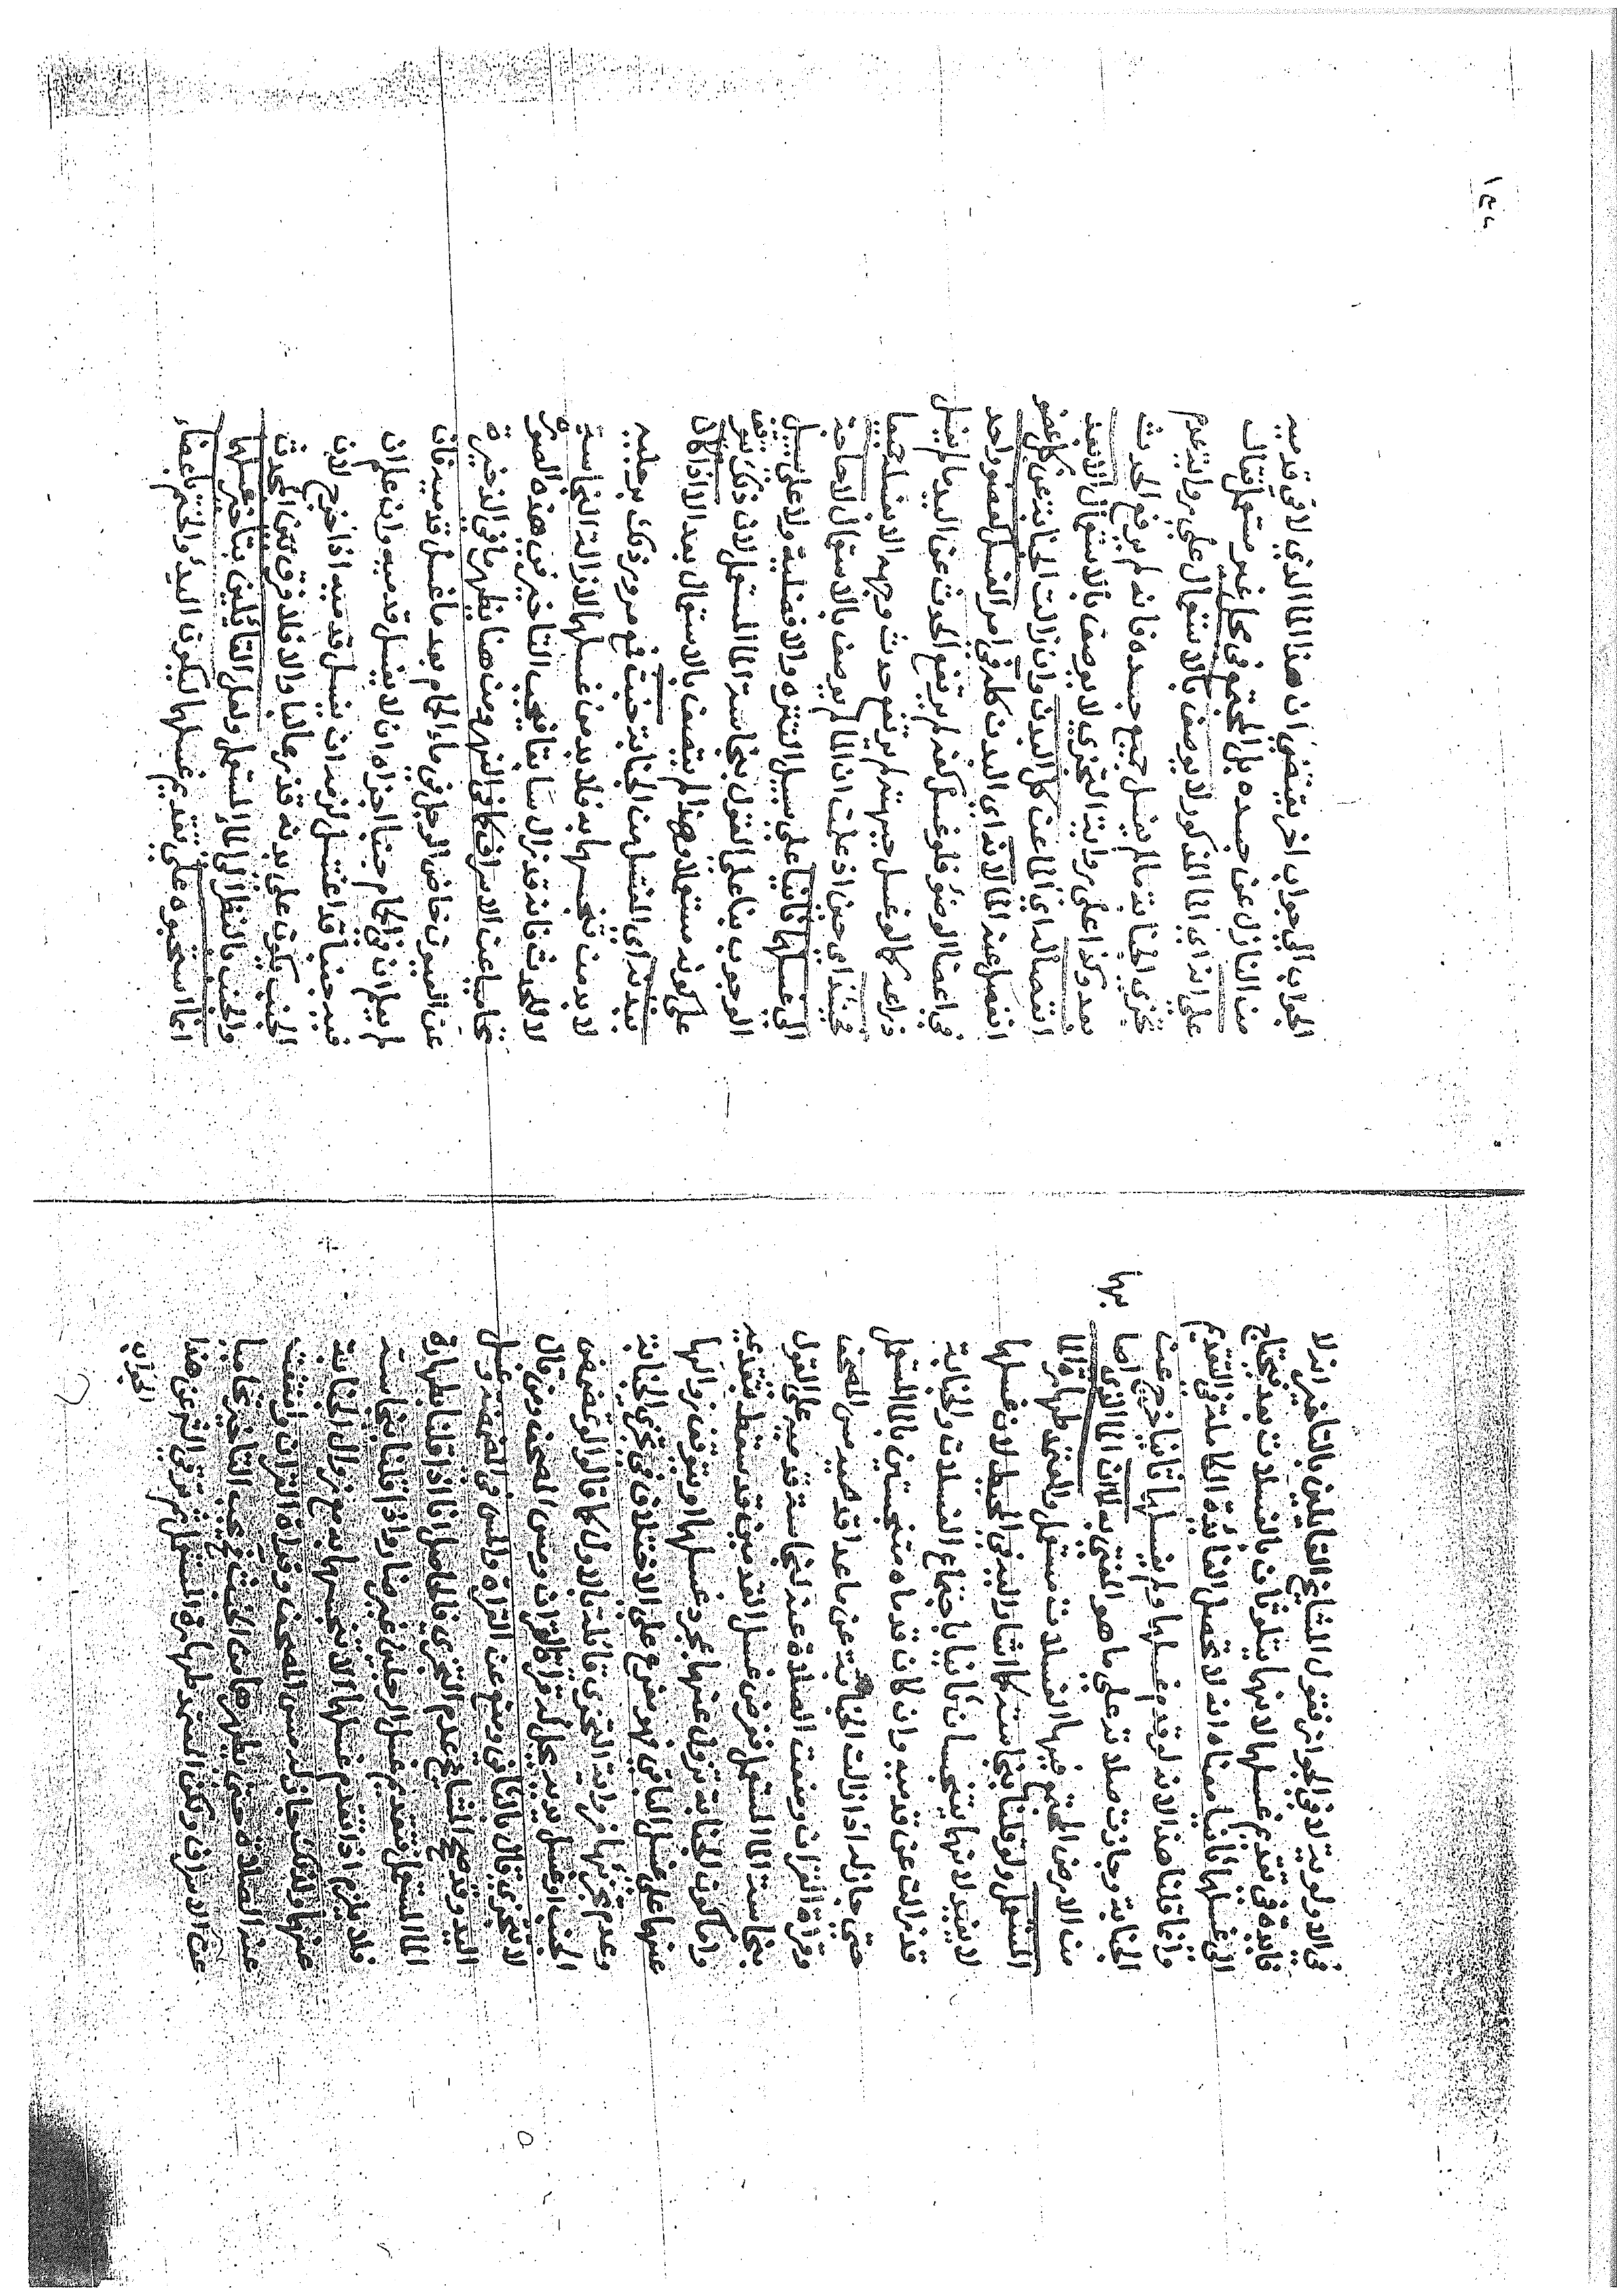 في الاولوية لا في الجواز فقول المشايخ القايلين بالتاخير انه لا
فايدة في تقديم غسلها لانها يتلوثان بالغسلات بعد فيحتاج
الى غسلها ثانيا معناه انه لا تحصل الفائدة الكاملة في التقديم
وانما قلنا هذا لانه لو قدم غسلها ولم يغسلها ثانيا خرج عن
الجنابة وجازت صلاته على ما هو المفتى به لان الماء الذي اصابها
من الارض المجتمع فيها الغسلات مستعمل والمعتمد طهارة الماء
المستعمل ولو قلنا بنجاسته كما اشار اليه في المحيط لان غسلها
لا يفيد لانها يتنجسان ثانيا باجتماع الغسلات والجنابة
قد زالت عن قدميه وان كان قدماه متنجستين بالماء المستعمل
حتى جاز له اذا زالت الجنابة عن ما عدا قدميه مس المصحف
وقراة القران ومنعت الصلاة عند نجاسة قدميه على القول
بنجاسة الماء المستعمل ففرض غسل القدمين قد سقط بتقديمه
واما كون الجنابة تزول عنها بمجرد غسلها او يتوقف زوالها
عنها على غسل الباقي فهو مفرع على الاختلاف في تجزي الجنابة
وعدم تجزئها فرواية التجزي قائلة بالاول كما قالوا لو تمضمض
الجنب او غسل يديه يحل له قراة القران ومس المصحف ومن قال
لا يتجزى قال بالثاني ومنع عن القراة والمس في المضمضة وغسل
اليد وقد صحح المشايخ عدم التجزي فالحاصل انا اذا قلنا بطهارة
الماء المستعمل فتقديم غسل الرجلين غير ضار واذا قلنا بنجاسته
فلا يلزم اذا تقدم غسلها الا تنجسها به مع زوال الجنابة
عنها ولذلك جاز له مس المصحف وقراة القران وامتنعت
عنه الصلاة حتى يطهرها من الخبث فيجب التاخير تحاميا
عن الاسراف ولكن المعتمد طهارة المستعمل ثم ترقى الشرح عن هذا
الجواب
الجواب الى جواب اخر يقتضي ان هذا الماء الذي لاقى قدميه
من النازل عن جسده بل المجتمع في محل غير مستعمل فقال
على ان اي الماء المذكور لا يوصف بالاستعمال على رواية عدم
تجزي الجنابة ما لم يغسل جميع جسده فانه لم يرفع الحدث
بعد وكذا على رواية التجزي لا يوصف بالاستعمال الا بعد
انفصاله اي الماء عن كل البدن وان زالت الجنابة عن كل عضو
انفصل عنه الماء لانه اي البدن كله في امر الغسل كعضو واحد
في اعضاء الوضوء فلو غسل كفه لم يرتفع الحدث عن اليد ما لم يغسل
ذراعه كما لو غسل جبهته لم يرتفع حدث وجهه الا بغسله جميعا
فحينئذ اي حين اذ علمت ان الماء لم يوصف بالاستعمال لا حاجة
الى غسلها ثانيا على سبيل التنزه والافضلية ولا على سبيل
الوجوب بنا على القول بنجاسة الماء المستعمل لان ذلك يتوقف
على كونه مستعملا وهذا لم يتصف بالاستعمال بعد الا اذا كان
ببدنه اي المغتسل من الجنابة خبث فمع مرور ذلك به عليه
لا بد من تنجسها به فلا بد من غسلها لازالة النجاسة
لا للحدث فانه قد زال سابقا فيجب التاخير في هذه الصورة
تحاميا عن الاسراف كما في النهر ومن هنا يظهر ما في الذخيرة
عن العيون خاض الرجل في ماء الحمام بعد ما غسل قدميه فان
لم يعلم ان في الحمام جنبا اجزاه ان لا يغسل قدميه وان علم ان
فيه جنبا قد اغتسل لزمه ان يغسل قدميه اذا خرج لان
الجنب يكون على بدنه قذر غالبا والا فلا فرق بين المحدث
والجنب بالنظر الى الماء المستعمل ولعل القائلين بتاخير غسلها
انما استحبوه على تقديم غسلها ليكون البدء والختم باعضاء